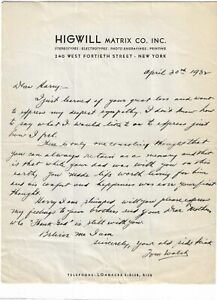 HIGWILL MATRIX CO. INC.
STEREOTYPES - ELECTROTYPES - PHOTO-ENGRAVINGS - PRINTING
240 WEST FORTIETH STREET - NEW YORK
April 20th 1932
Dear Harry:-
I just learned of your great loss and want
to express my deepest sympathy. I don't know how
to say what I would like to to express just
how I feel.
There is only one consoling thought that
you can always retain as a memory and that
is that while your Dad was with you on this
earth. You made life worth living for him
and his comfort and happiness was ever your first
thought.
Harry I am with you please express
my feelings to your brothers and your dear Mother
who "Thank God" is still with you.
Believe me I am
Sincerely, your old side kick
Tom Walsh
TELEPHONE: LONGACRE